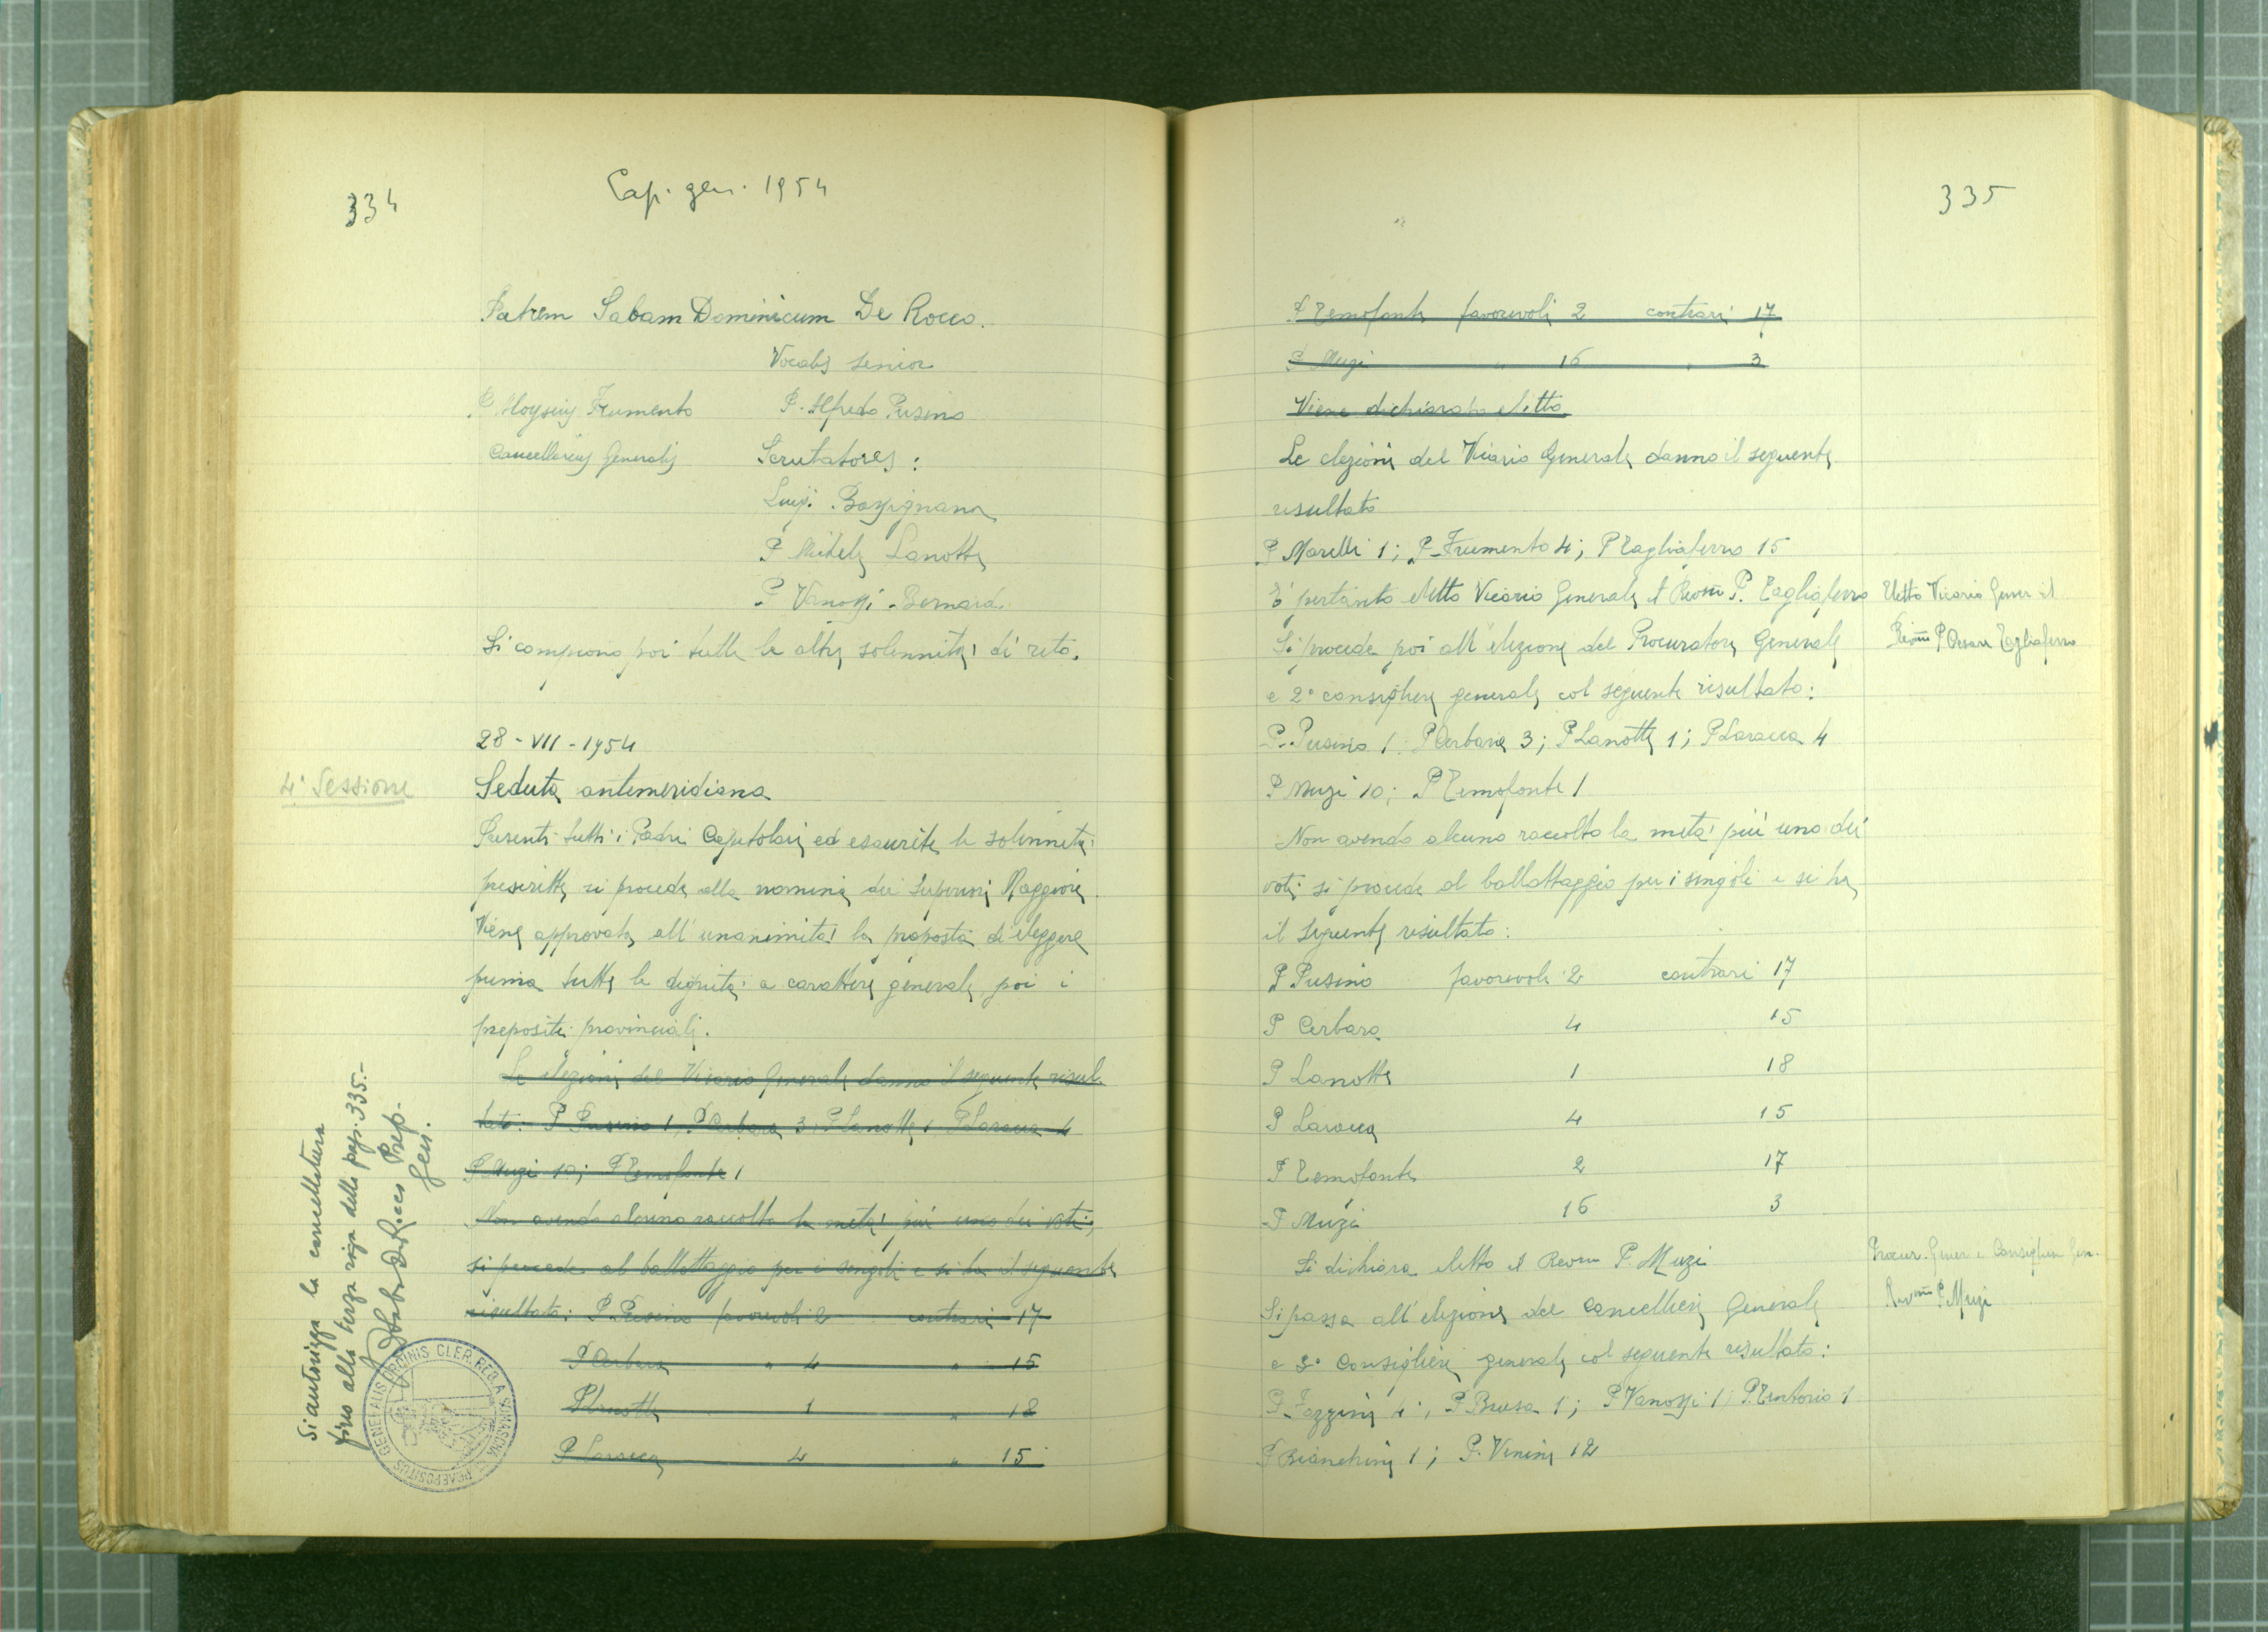 334
Cap. gen. 1954
Patrem Sabam Dominicum De Rocco.
Vocalis Senior
P. Aloysius Frumento P. Alfredo Pusino
Cancellarius Generalis Scrutatores:
Luigi Bassignana
P. Michele Lanotte
P. Vanossi Bernardo
Si compiono poi tutte le altre solennità di rito.
28-VII-1954
4ª Sessione
Seduta antimeridiana
Presenti tutti i Padri Capitolari ed esaurite le solennità
prescritte si procede alla nomina dei Superiori Maggiori.
Viene approvata all'unanimità la proposta di eleggere
prima tutte le dignità a carattere generale poi i
prepositi provinciali.
Le elezioni del Vicario Generale danno il seguente risul
tato: P Pusino 1, P Cerbara 3, P Lanotte 1 P Laracca 4
P Muzi 10; P Temofonte 1
Non avendo alcuno raccolto la metà più uno dei voti,
si procede al ballottaggio per i singoli e si ha il seguente
risultato: P. Pusino favorevoli 2 contrari 17
P Cerbara " 4 " 15
P Lanotte 1 " 18
P Laracca 4 " 15
Si autorizza la cancellatura
fino alla terza riga della pag. 335.-
P Saba De Rocco Prep.
Gen.
GENERALIS ORDINIS CLER. REG. A SOMASCHA PRAEPOSITUS
335
P Temofonte favorevoli 2 contrari 17
P Muzi " 16 " 3
Viene dichiarato eletto
Le elezioni del Vicario Generale danno il seguente
risultato
P Marelli 1; P. Frumento 4; P Tagliaferro 15
E' pertanto eletto Vicario Generale il Revm P. Tagliaferro
Eletto Vicario Gener il
Revmo P Cesare Tagliaferro
Si procede poi all'elezione del Procuratore Generale
e 2° consigliere generale col seguente risultato:
P. Pusino 1; P Cerbara 3; P Lanotte 1; P Laracca 4
P Muzi 10; P Temofonte 1
Non avendo alcuno raccolto la metà più uno dei
voti si procede al ballottaggio per i singoli e si ha
il seguente risultato:
P Pusino favorevoli 2 contrari 17
P Cerbara 4 15
P Lanotte 1 18
P Laracca 4 15
P Temofonte 2 17
P Muzi 16 3
Si dichiara eletto il Revm P. Muzi
Procur. Gener. e Consigliere Gen.
Revmo P. Muzi
Si passa all'elezione del Cancelliere Generale
e 3° Consigliere generale col seguente risultato:
P. Fazzini 4; P Brusa 1; P Vanossi 1; P. Tentorio 1
P Bianchini 1; P. Venini 12